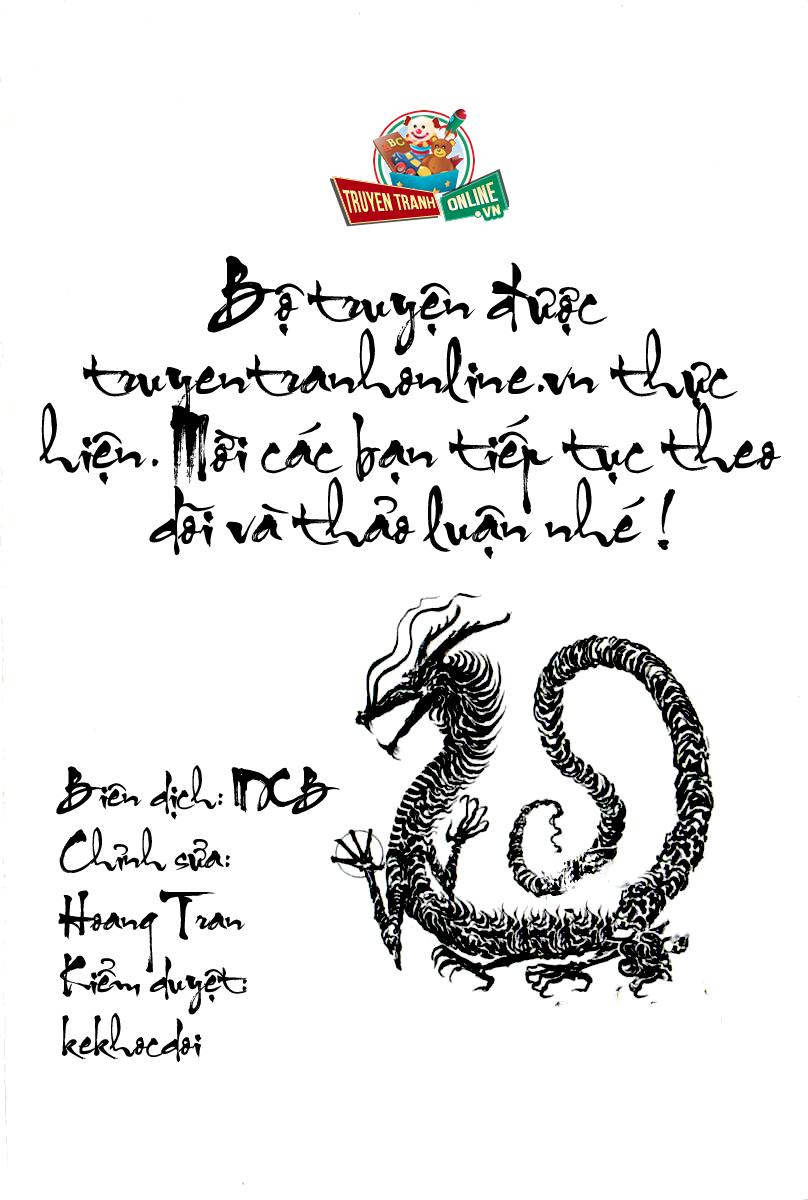 ABC
TRUYEN TRANH ONLINE.VN
Bộ truyện được
truyentranhonline.vn thực
hiện. Mời các bạn tiếp tục theo
dõi và thảo luận nhé !
Biên dịch: MCB
Chỉnh sửa:
Hoang Tran
Kiểm duyệt:
kekhocdoi